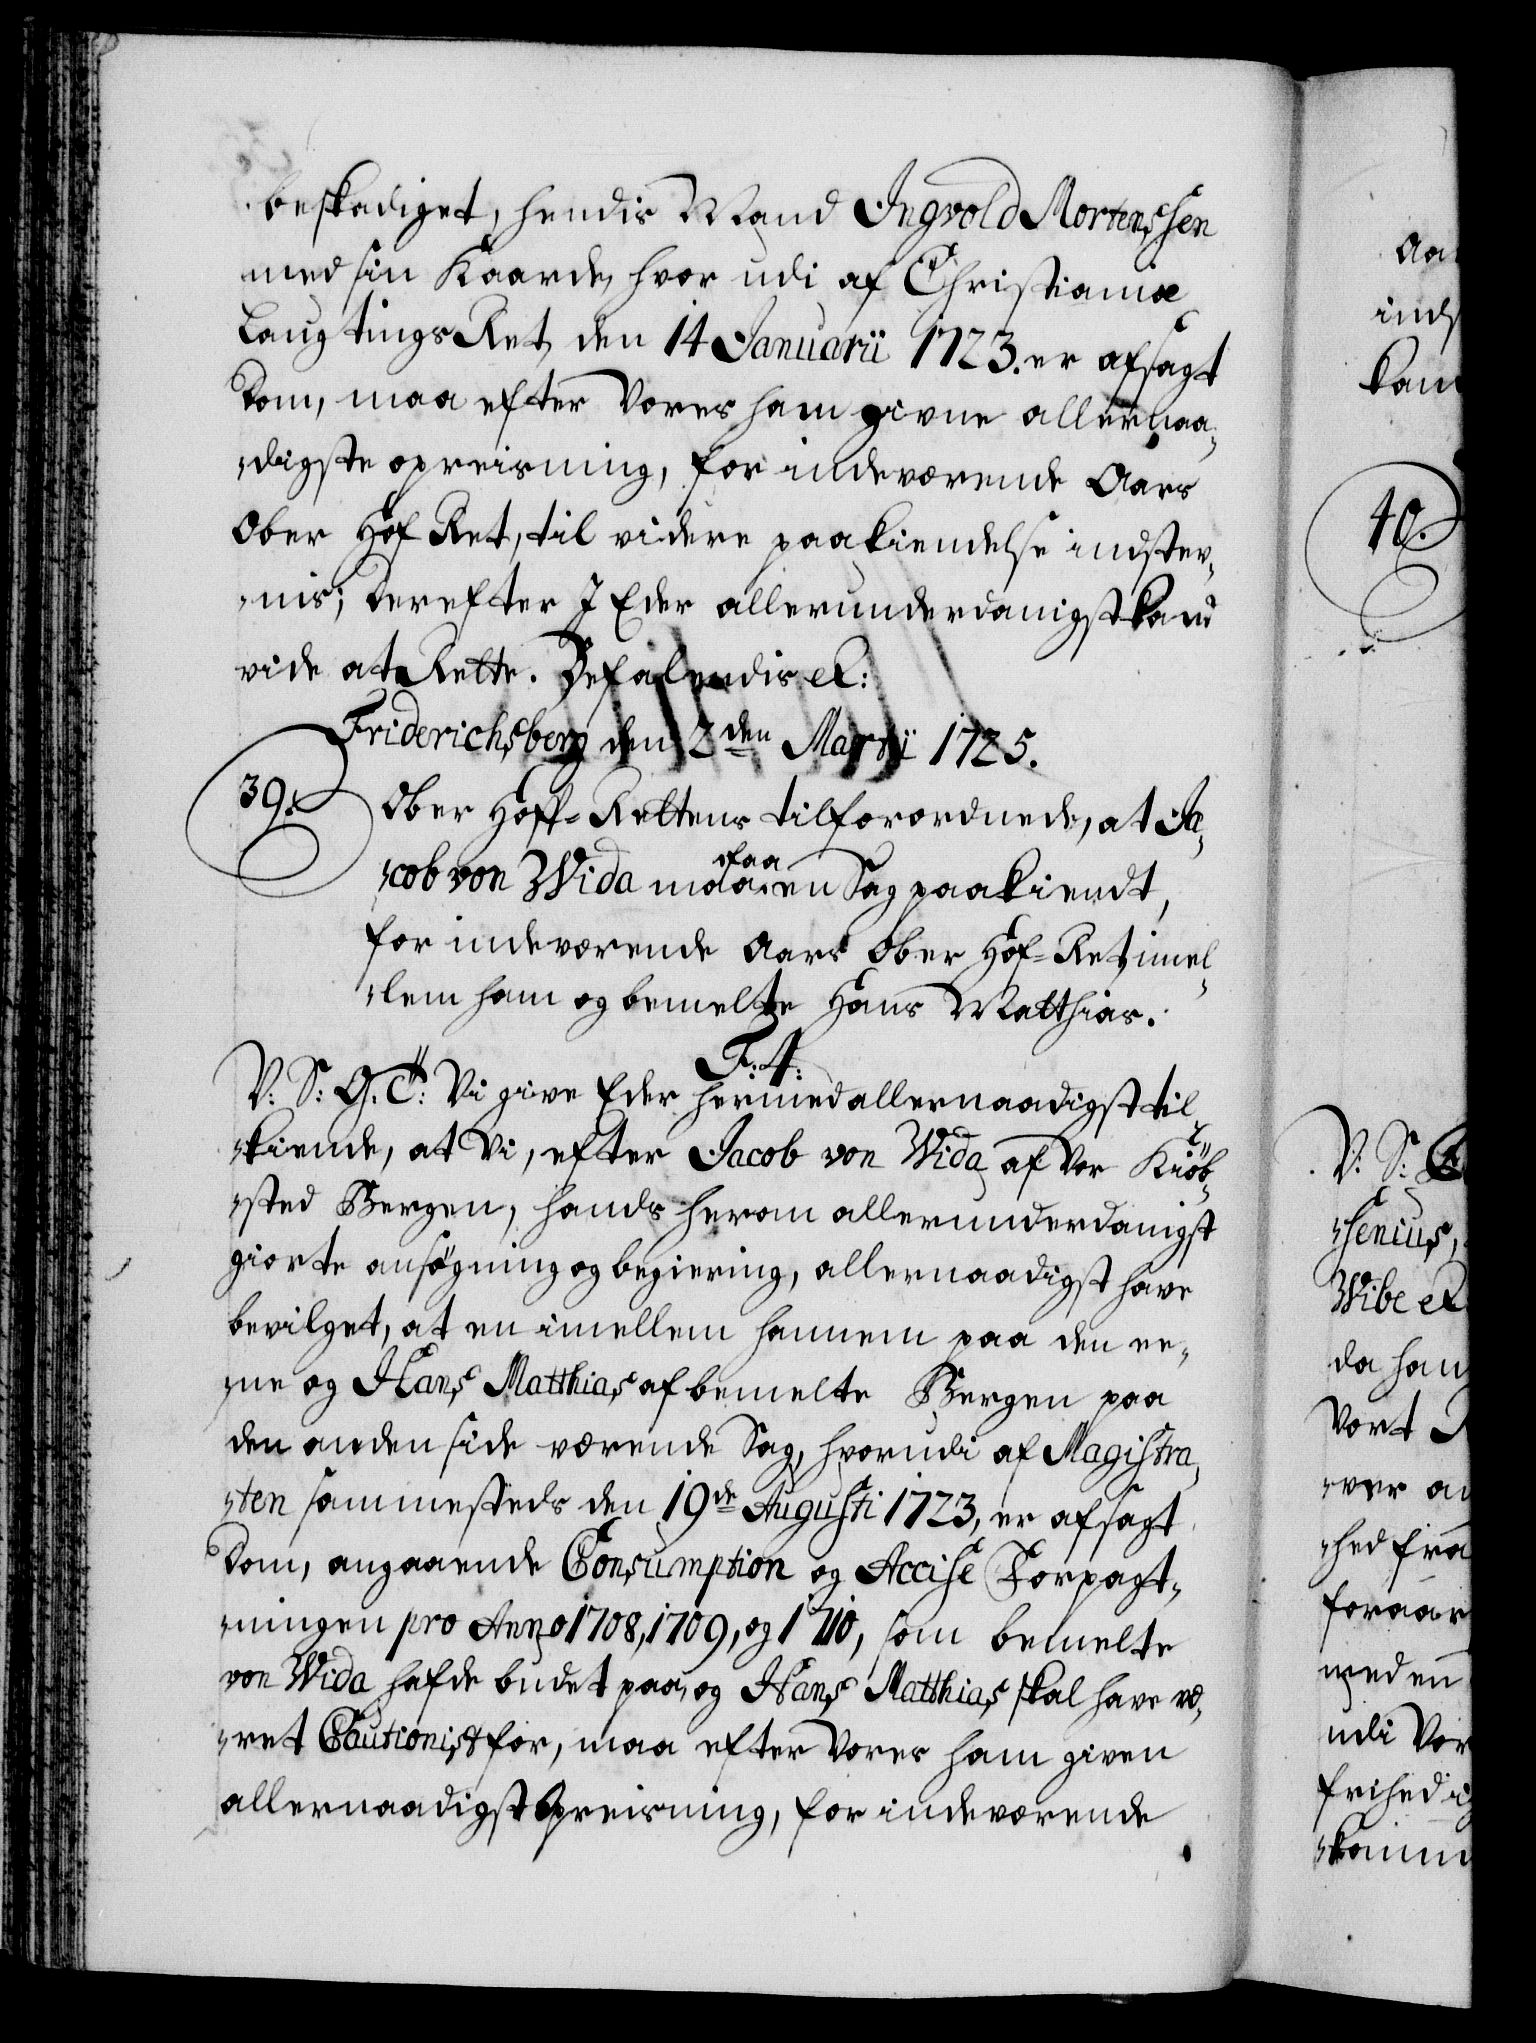 beskadiget, hendis Mand Ingvold Mortensen
med sin Kaarde, hvor udi af Christianiæ
Laugtings Ret, den 14 Januarii 1723. er afsagt
Dom, maa efter Vores ham givne allernaa-
-digste opreisning, for indeværende Aars
Ober Hof Ret, til videre paakiendelse indstev-
-nis; Derefter I Eder allerunderdanigst kand
vide at Rette. Befalendis etc:
Friderichsberg den 2den Martii 1725.
39. Ober Hoff-Rettens tilforordnede, at Ja-
-cob von Wida maa faa en Sag paakiendt,
for indeværende Aars Ober Hof-Ret imel-
-lem ham og bemelte Hans Matthias.
F. 4.
V: S: G. T: Vi give Eder hermed allernaadigst til-
-kiende, at Vi, efter Jacob von Wida af Vor Kiøb-
-sted Bergen, hands herom allerunderdanigst
giorte ansøgning og begiering, allernaadigst have
bevilget, at en imellem hannem paa den ee-
-ne og Hans Matthias af bemelte Bergen paa
den anden side værende Sag, hvorudi af Magistra-
-ten sammesteds den 19de Augusti 1723, er afsagt
Dom, angaaende Consumption og Accise Forpagt-
-ningen pro Anno 1708, 1709, og 1710, som bemelte
von Wida hafde budet paa, og Hans Matthias skal have væ-
-ret Cautionist for, maa efter Vores ham given
allernaadigst Opreisning, for indeværende
40.
V: S:
-senius,
Wibe etc
da han
Vort
-ver
-hed fra
foraar
med en
udi Vor
frihed